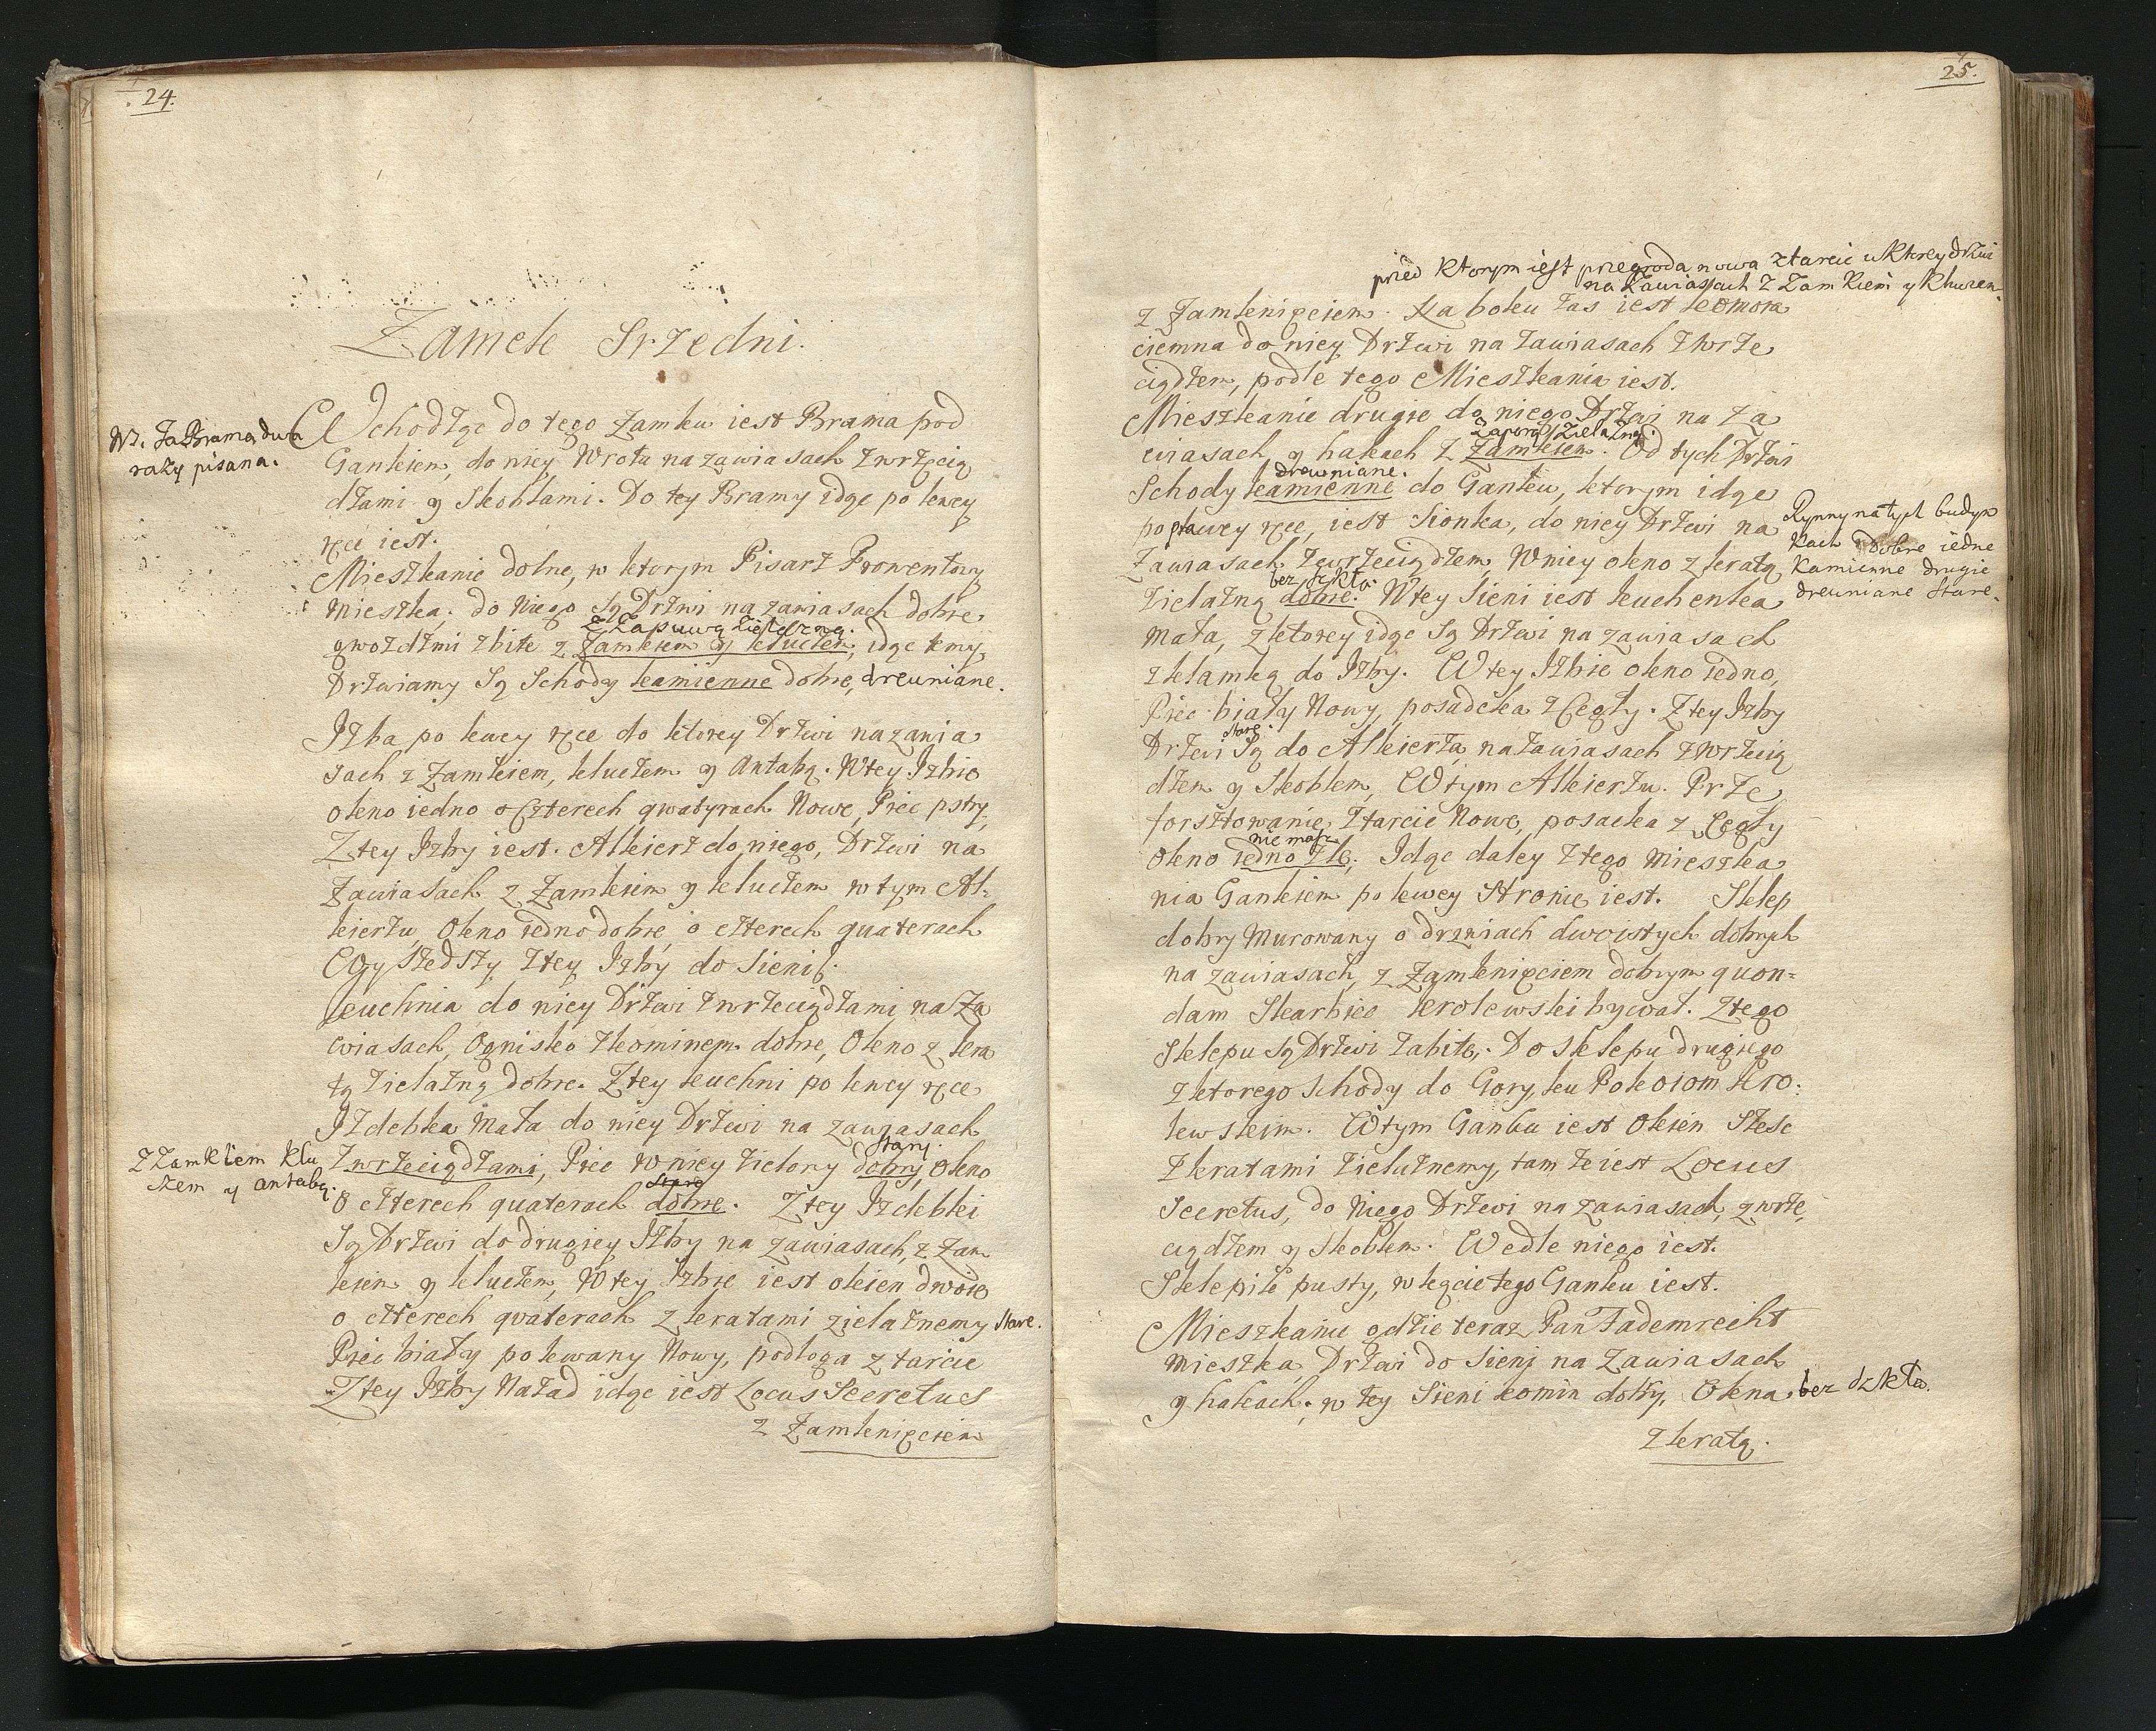 24.
Zamek Srzedni.
Wchodząc do tego Zamku iest Brama pod
Nt. Ta Brama dwa
razy pisana.
Gankiem, do niey Wrota na zawiasach z wrzecią
dzami y Skoblami. Do tey Bramy idąc po lewey
ręce iest.
Mieszkanie dolne, w ktorym Pisarz Prowentowy
mieszka. do Niego Są Drzwi na zawiasach dobre
z Zapuwą Zielazną.
gwozdzmi zbite z Zamkiem y kluczem, idąc temy
Drzwiamy Są Schody kamienne dobre, drewniane.
Izba po lewey ręce do ktorey Drzwi na zawia
sach z Zamkiem, kluczem y Antabą. W tey Izbie
okno iedno o Czterech qwatyrach Nowe, Piec pstry,
Z tey Izby iest. Alkierz do niego, Drzwi na
Zawiasach z Zamkiem y kluczem w tym Al-
kierzu, Okno iedno dobre o czterech quaterach
Wyszedszy z tey Izby do Sieni.
Kuchnia do niey Drzwi z wrzeciądzami na Za
wiasach, Ognisko z kominem dobre, Okno z kra
tą Zielazną dobre. Z tey kuchni po lewey ręce
Izdebka Mała do niey Drzwi na zawiasach
Z Zamkiem klu
czem y antabą.
Stary.
Z wrzeciądzami, Piec w niey zielony dobry, Okno
Stare
o czterech quaterach dobre. Z tey Izdebki
Są Drzwi do drugiey Izby na zawiasach, z Zam
kiem y kluczem, W tey Izbie iest okien dwoie
o czterech qvaterach z kratami zielaznemy stare.
Piec biały polewany Nowy, podłoga z tarcic
Z tey Izby Nazad idąc iest Locus Secretus
z Zamknięciem
25.
przed ktorym iest przegroda nowa z tarcic u ktorey drzwi
na Zawiasach z Zamkiem y kluczem.
z Zamknięciem. Na boku zas iest komora
ciemna do niey Drzwi na zawiasach z wrze
ciądzem, podle tego Mieszkania iest.
Mieszkanie drugie do niego Drzwi na Za
Zaporą Zielazną.
wiasach y hakach z Zamkiem. Od tych Drzwi
drewniane.
Schody kamienne do Ganku, ktorym idąc
po prawey ręce, iest Sionka, do niey Drzwi na
Rynny na tych budyn
kach dobre iedne
kamienne drugie
drewniane stare.
Zawiasach z wrzeciądzem, W niey okno z kratą
bez szkła.
zielazną dobre. W tey Sieni iest kuchenka
mała, z ktorey idąc Są Drzwi na zawiasach
z klamką do Izby. W tey Izbie okno iedno,
Piec biały Nowy, posadzka z Cegły. Z tey Izby
stare
Drzwi Są do Alkierza na zawiasach z wrzecią
dzem y Skoblem, W tym Alkierzu. Prze
forsztowanie, z tarcic Nowe, posacka z Cegły
nie masz
okno iedno złe, Idąc daley z tego Mieszka
nia Gankiem po lewey Stronie iest. Sklep
dobry Murowany o drzwiach dwoistych dobrych
na zawiasach, z Zamknięciem dobrym quon=
dam Skarbiec krolewski bywał. Z tego
Sklepu są Drzwi zabite, Do Sklepu drugiego
z ktorego Schody do Gory, ku Pokoiom kro:
lewskim. W tym Ganku iest Okien Szesc
z kratami zielaznemy, tamze iest Locus
Secretus, do Niego Drzwi na zawiasach, z wrze,
ciądzem y Skoblem. Wedle niego iest.
Sklepik pusty, w kącie tego Ganku iest.
Mieszkanie gdzie teraz Pan Fademrecht
mieszka, Drzwi do Sieni na zawiasach
y hakach, w tey Sieni komin dobry, Okna bez szkła.
z kratą.